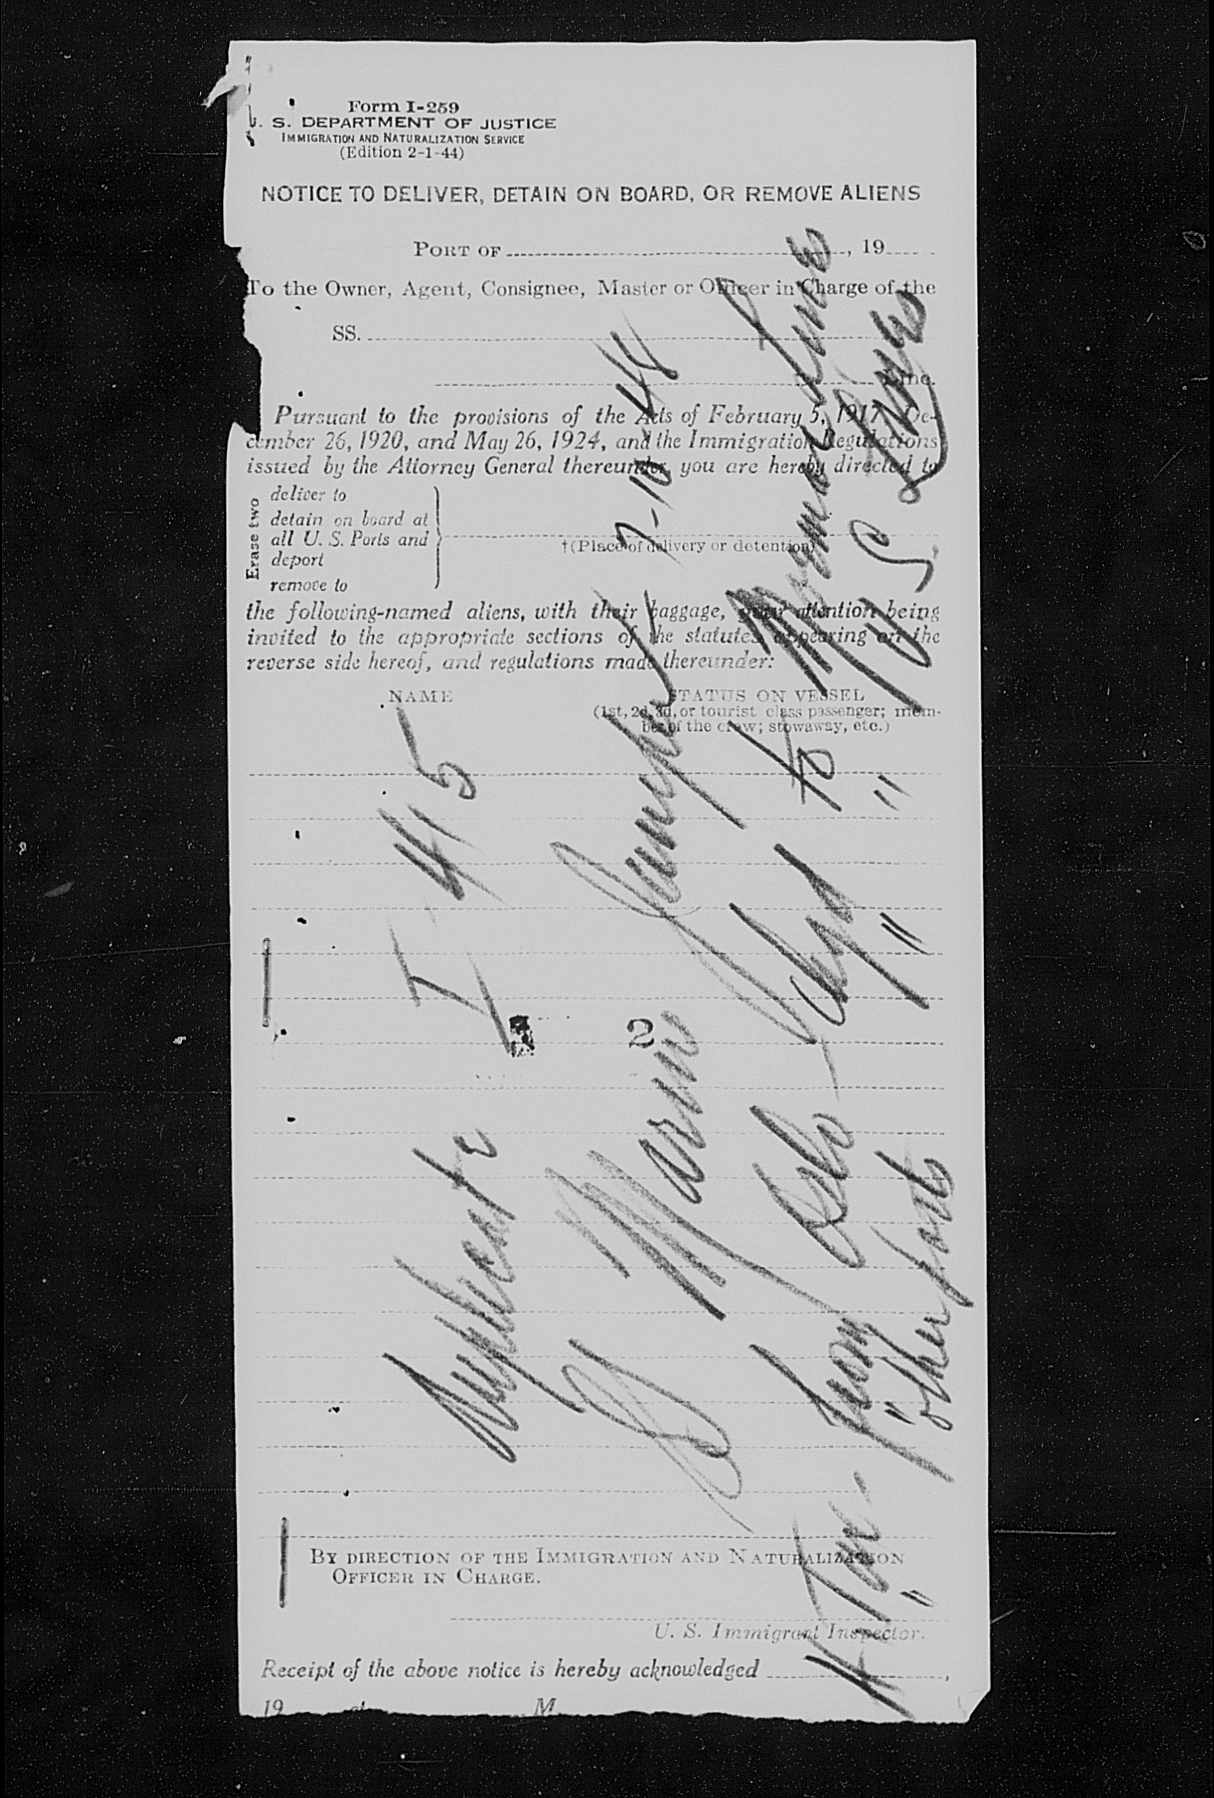 Form I-259
U. S. DEPARTMENT OF JUSTICE
IMMIGRATION AND NATURALIZATION SERVICE
(Edition 2-1-44)
NOTICE TO DELIVER, DETAIN ON BOARD, OR REMOVE ALIENS
PORT OF , 19
To the Owner, Agent, Consignee, Master or Officer in Charge of the
SS.
Line.
Pursuant to the provisions of the Acts of February 5, 1917, De-
cember 26, 1920, and May 26, 1924, and the Immigration Regulations
issued by the Attorney General thereunder, you are hereby directed to
Erase two
deliver to
detain on board at
all U. S. Ports and
deport
remove to
†(Place of delivery or detention)
the following-named aliens, with their baggage, your attention being
invited to the appropriate sections of the statutes appearing on the
reverse side hereof, and regulations made thereunder:
NAME
STATUS ON VESSEL
(1st, 2d, 3d, or tourist class passenger; mem-
ber of the crew; stowaway, etc.)
2
By direction of the Immigration and Naturalization
Officer in Charge.
U. S. Immigrant Inspector.
Receipt of the above notice is hereby acknowledged ,
19 at M.
Duplicate I-415
S/S Marine Jumper - 7-10-48
from Oslo to
" other ports " " U S Lines